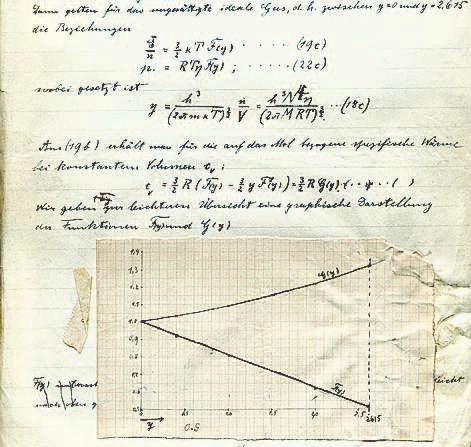 Dann gelten für das ungesättigte ideale Gas, d.h. zwischen y = 0 und y = 2,615
die Beziehungen
Ē/n = 3/2 κ T F(y) · · · · · (19c)
p = R T η F(y) ; · · · · · (22c)
wobei gesetzt ist
y = h³/(2π m κ T)^(3/2) n/V = h³ N⁴ η/(2π M R T)^(3/2) · · · (18c)
Aus (19b) erhält man für die auf das Mol bezogene spezifische Wärme
bei konstantem Volumen c_v:
c_v = 3/2 R (F(y) − 2/3 y F'(y)) = 3/2 R G(y) ( · · · · ( )
Wir geben zur leichteren Übersicht eine graphische Darstellung
der Funktionen F(y) und G(y)
1.4
1.3
1.2
1.1
1.0
0.9
0.8
0.7
0.6
0.5
G(y)
F(y)
0
2.615
y
0.5
F(y)
leicht